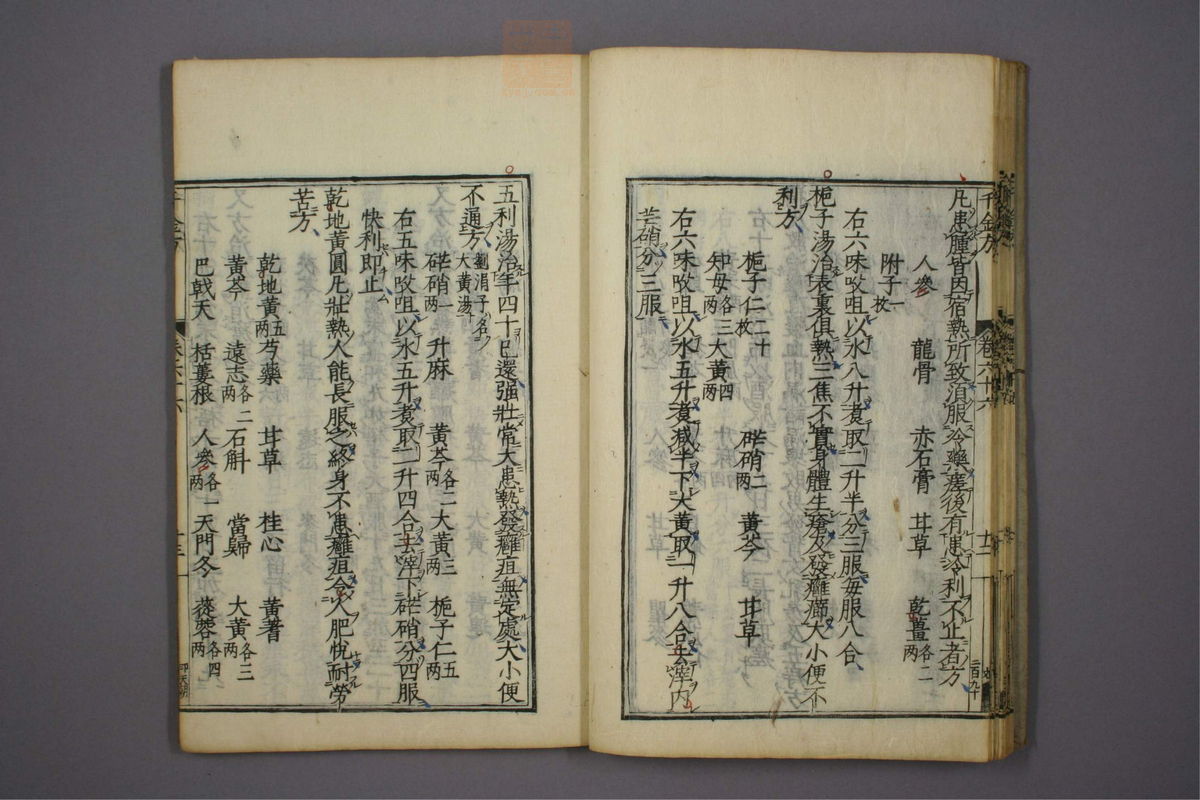 凡患腫皆因宿熱所致須服冷藥瘥後有患冷利不止者方
人參 龍骨 赤石膏 甘草 乾薑各二两
附子一枚
右六味㕮咀以水八升煑取二升半分三服毎服八合
梔子湯治表裏俱熱三焦不實身體生瘡及發癰癤大小便不
利方
梔子仁二十枚 芒硝二两 黃芩 甘草
知母各三两 大黃四两
右六味㕮咀以水五升煑減半下大黃取一升八合去滓内
芒硝分三服
五利湯治年四十已還强壯常大患熱發癰疽無定處大小便
不通方劉涓子名大黃湯
芒硝一两 升麻 黃芩各二两 大黃三两 梔子仁五两
右五味㕮咀以水五升煑取二升四合去滓下芒硝分四服
快利即止
乾地黃圓凡壯熱人能長服之終身不患癰疽令人肥恱耐勞
苦方
乾地黃五两 芍藥 甘草 桂心 黃蓍
黃芩 遠志各二两 石斛 當歸 大黃各三两
巴戟天 栝蔞根 人參各一两 天門冬 蓯蓉各四两
千金方
卷六十六
十二